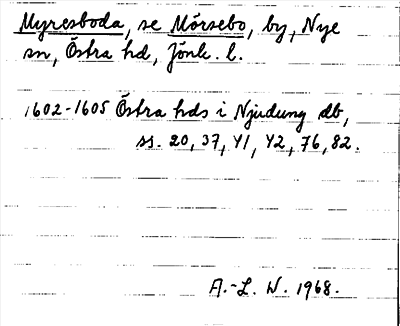 Myresboda, se Mörsebo, by, Nye
sn, Östra hd, Jönk. l.
1602-1605 Östra hds i Njudung db,
ss. 20, 37, 41, 42, 76, 82.
A.-L. W. 1968.